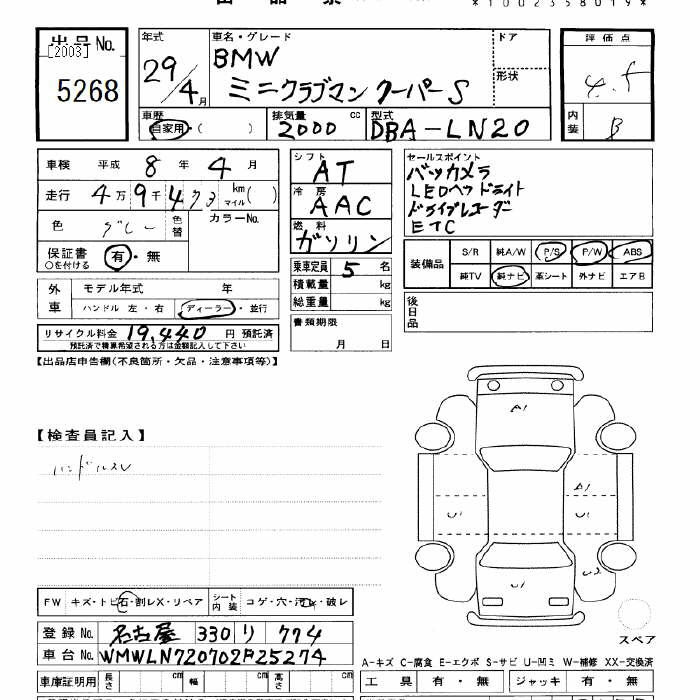 *1002358019*
出品No.
[2003]
5268
年式
29/4月
車名・グレード
BMW
ミニクラブマン クーパーS
ドア
形状
評価点
4.5
内装
B
車歴
自家用・( )
排気量
2000 cc
型式
DBA-LN20
車検 平成 8年 4月
走行 4万9千473 km マイル( )
色 グレー 色替 カラーNo.
保証書
○を付ける
有・無
外車
モデル年式 年
ハンドル 左・右 ディーラー・並行
リサイクル料金 19,440 円 預託済
預託済で精算希望される方は金額記入して下さい
シフト
AT
冷房
AAC
燃料
ガソリン
乗車定員 5 名
積載量 kg
総重量 kg
書類期限
月 日
セールスポイント
バックカメラ
LEDヘッドライト
ドライブレコーダー
ETC
装備品
S/R 純A/W P/S P/W ABS
純TV 純ナビ 革シート 外ナビ エアB
後日品
【出品店申告欄(不良箇所・欠品・注意事項等)】
【検査員記入】
ハンドルスレ
A1
A1
U1
U1
U1
U2
スペア
FW キズ・トビ石・割レX・リペア シート内装 コゲ・穴・汚レ・破レ
登録No. 名古屋 330 り 774
車台No. WMWLN720702F25274
A-キズ C-腐食 E-エクボ S-サビ U-凹ミ W-補修 XX-交換済
車庫証明用 長さ cm 幅 cm 高さ cm
工具 有・無 ジャッキ 有・無